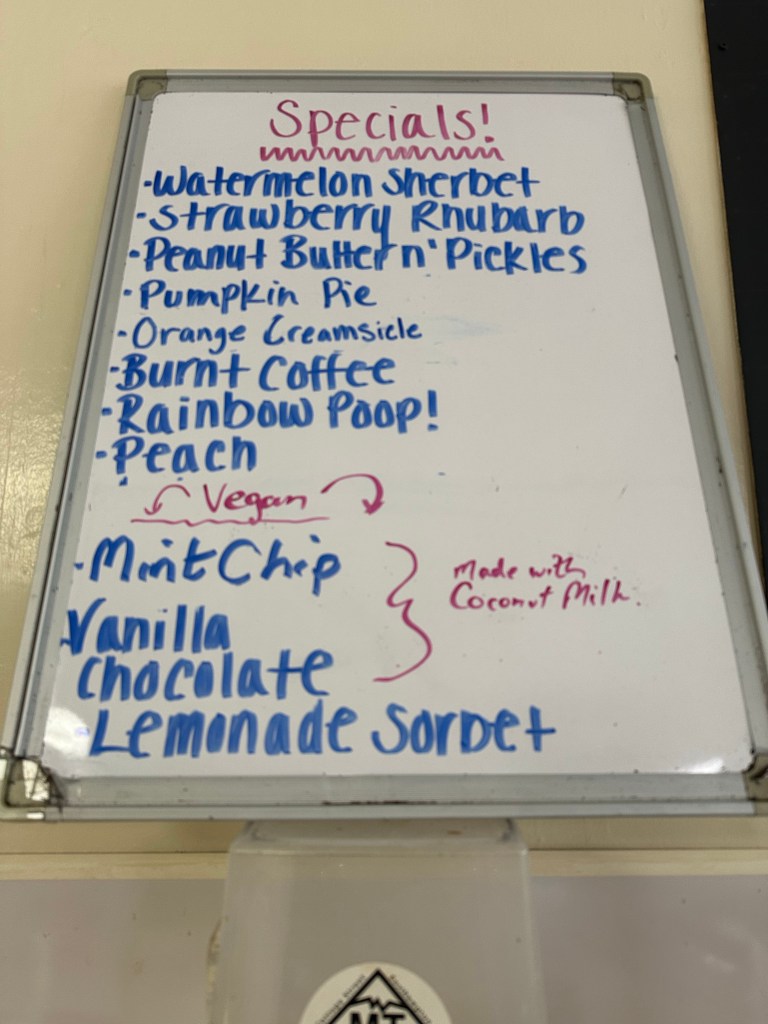 Specials!
·Watermelon Sherbet
·Strawberry Rhubarb
·Peanut Butter n' Pickles
·Pumpkin Pie
·Orange Creamsicle
·Burnt Coffee
·Rainbow Poop!
·Peach
Vegan
·Mint Chip
Made with
Coconut Milk.
Vanilla
Chocolate
Lemonade Sorbet
MT